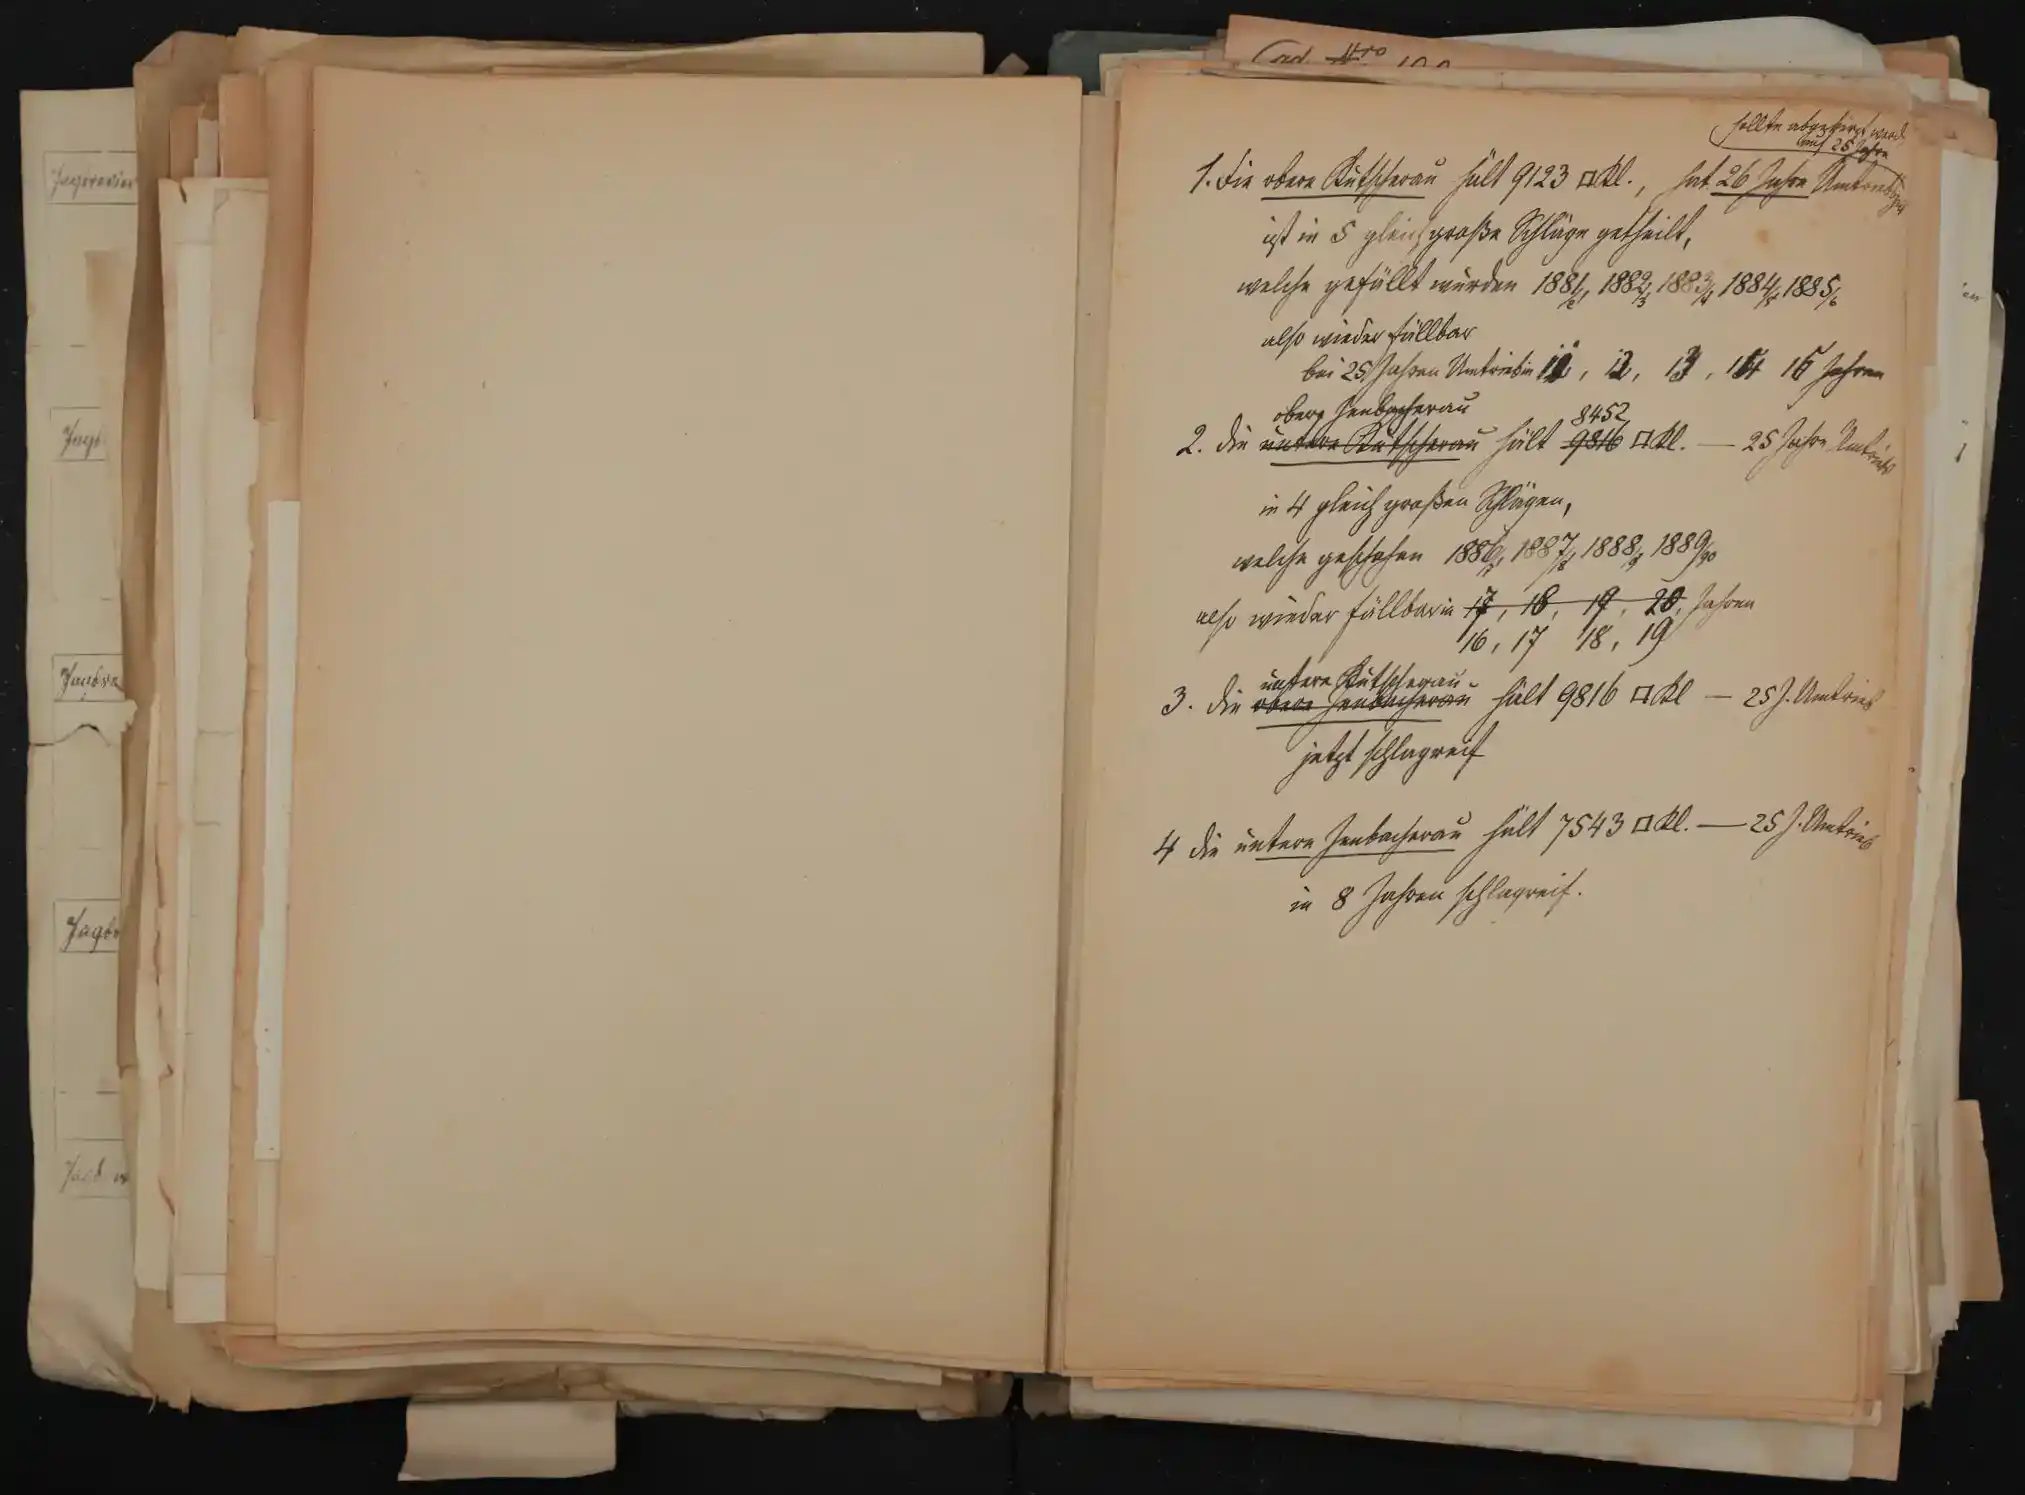 Jagdrevier
Jagd
Jagdre
Jagdr
Jagd
Cad. Nro 100
sollte abgekürzt werd.
auf 25 Jahre
1. Die obere Kutscherau hält 9123 □Kl., hat 26 Jahre Umtriebszeit
ist in 5 gleich große Schläge getheilt,
welche gefällt wurden 1881/2, 1882/3, 1883/4, 1884/5, 1885/6
also wieder fällbar
bei 25 Jahren Umtrieb in 11, 12, 13, 14 15 Jahren
obere Jenbacherau 8452
2. Die untere Kutscherau hält 9816 □Kl. — 25 Jahre Umtrieb
in 4 gleich großen Schlägen,
welche geschehen 1886/7, 1887/8, 1888/9, 1889/90
also wieder fällbar in 17, 18, 19, 20, Jahren
16, 17 18, 19
untere Kutscherau
3. die obere Jenbacherau hält 9816 □Kl — 25 J. Umtrieb
jetzt schlagreif
4 die untere Jenbacherau hält 7543 □Kl. — 25 J. Umtrieb
in 8 Jahren schlagreif.